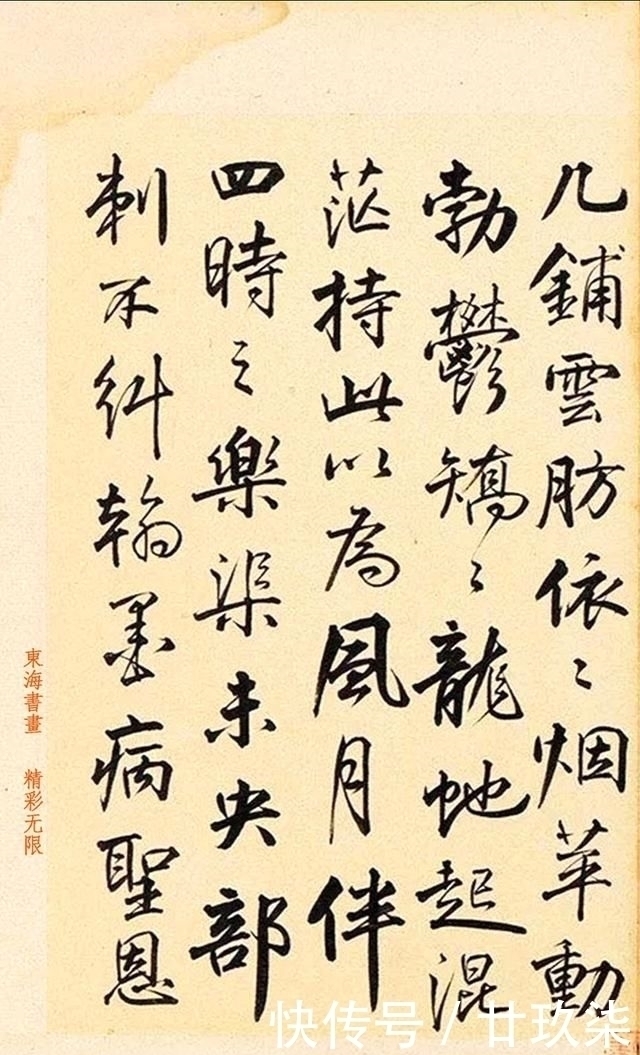 几鋪雲肪依〻烟華動
勃鬱矯〻龍虵起混
茫持此以為風月伴
四時之樂渠未央部
刺不糾翰墨病聖恩
東海書畫 精彩无限
快传号 / 廿玖柒